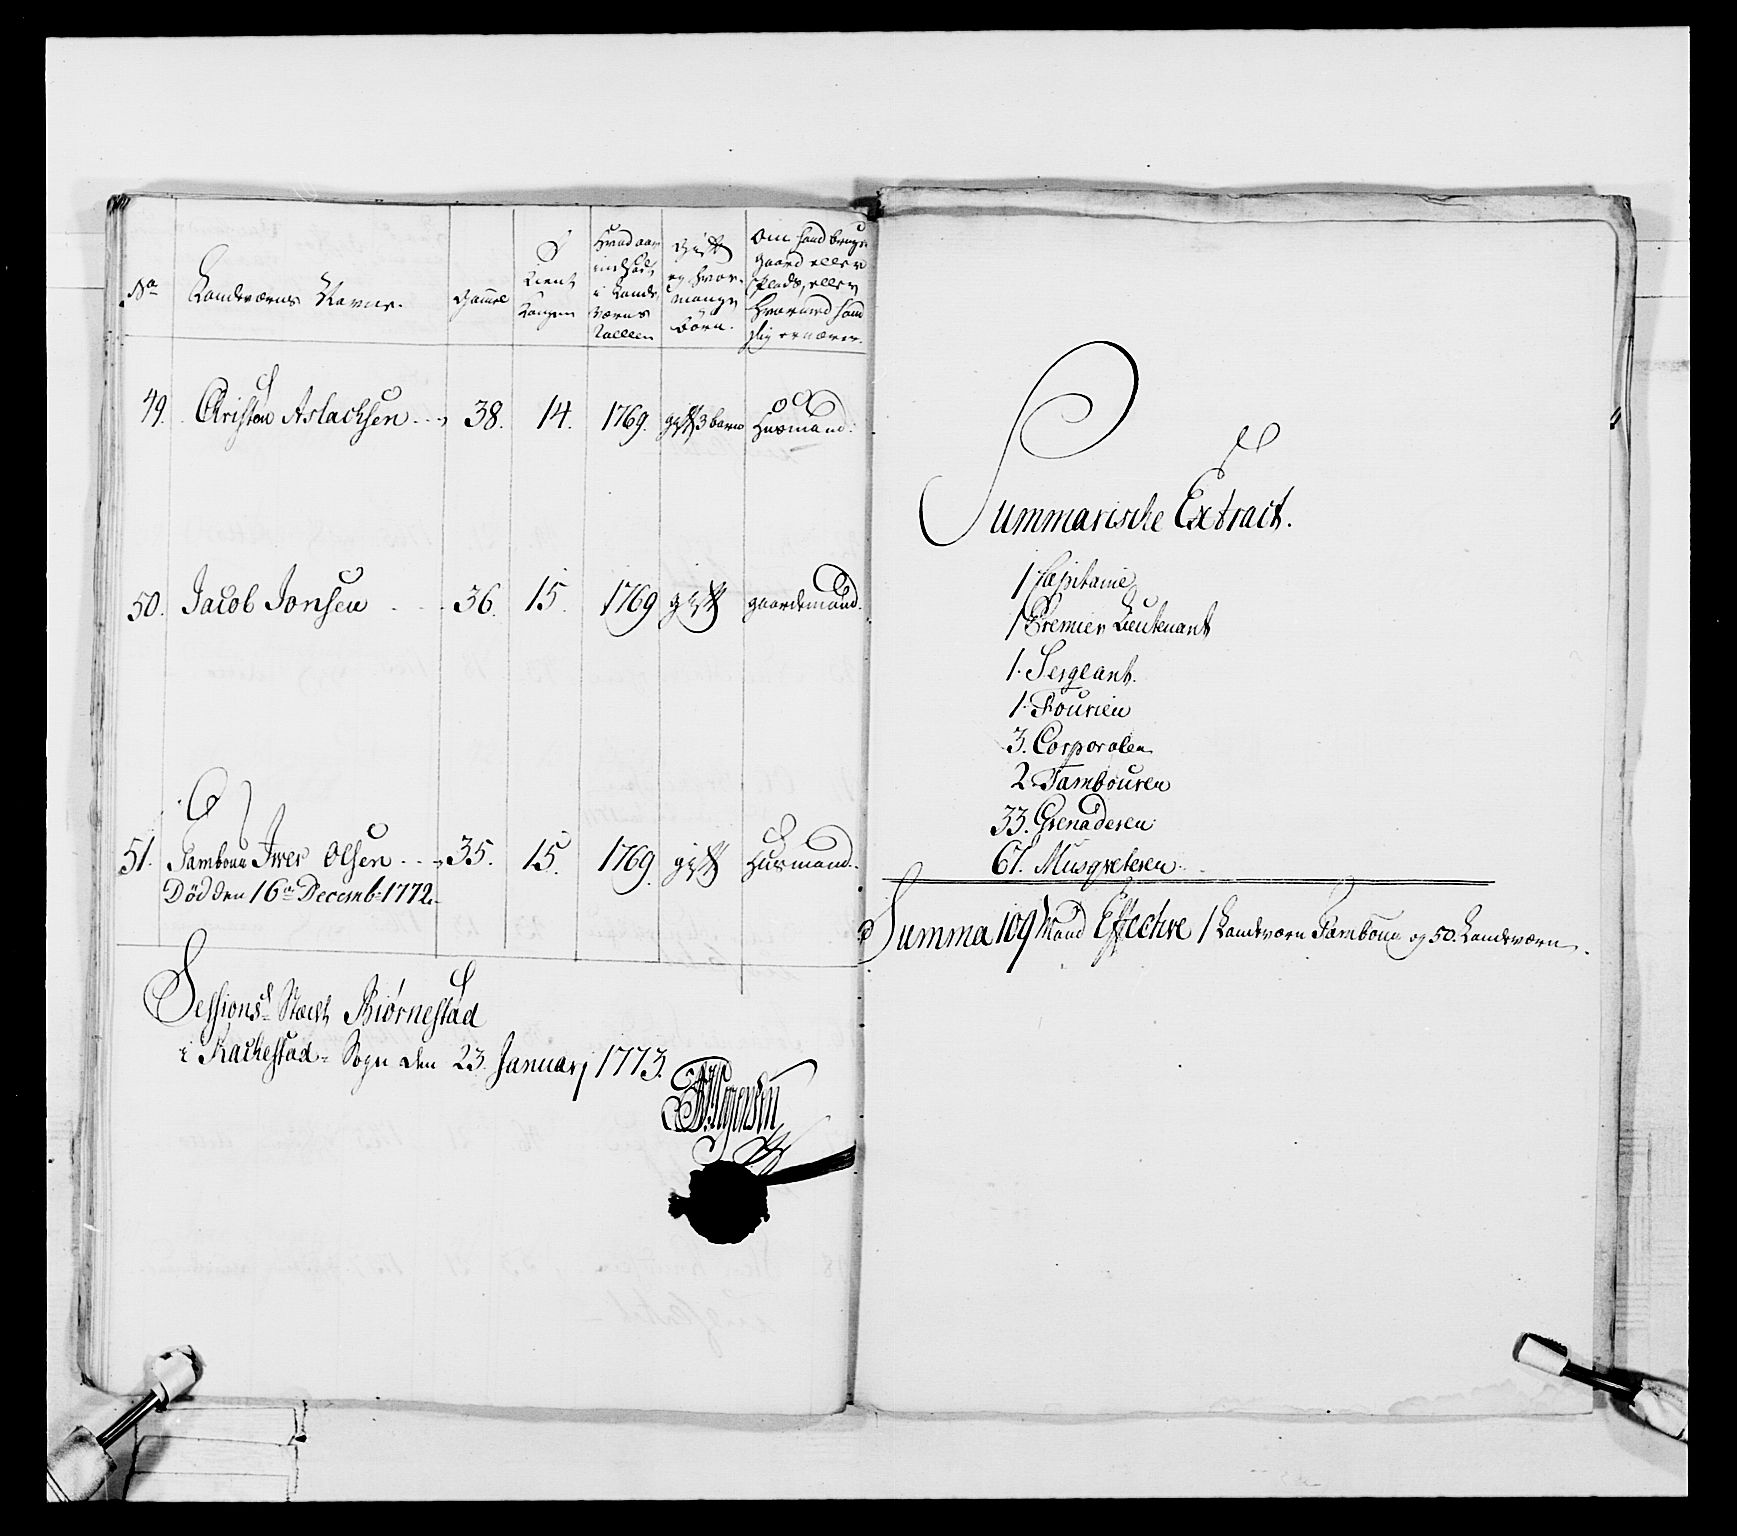 No
Landværns Navne.
Gammel
Tient
Kongen
Hvad aar
indsadt
i Land-
værns
Rullen
Gift
og hvor
mange
børn.
Om hand bruger
gaard eller
Plads, eller
hvormed hand
sig ernærer.
49. Christen Aslachsen 38. 14. 1769. gift 3 børn Husmand.
50. Jacob Jonsen 36. 15. 1769 gift gaardemand.
51. Tambour Iver Olsen 35. 15. 1769 gift Husmand.
Død den 16 Decemb: 1772.
Sessions Stædt Biørnestad
i Rachestad Sogn den 23 Januarj 1773.
Summarische Extract.
1 Capitaine
1 Premier Lieutenant
1. Sergeant.
1. Fourier
3. Corporalen
2. Tambouren
33. Grenaderen
67. Musqveteren
Summa 109 Mand Effective 1 Landværn Tambour og 50. Landværn.